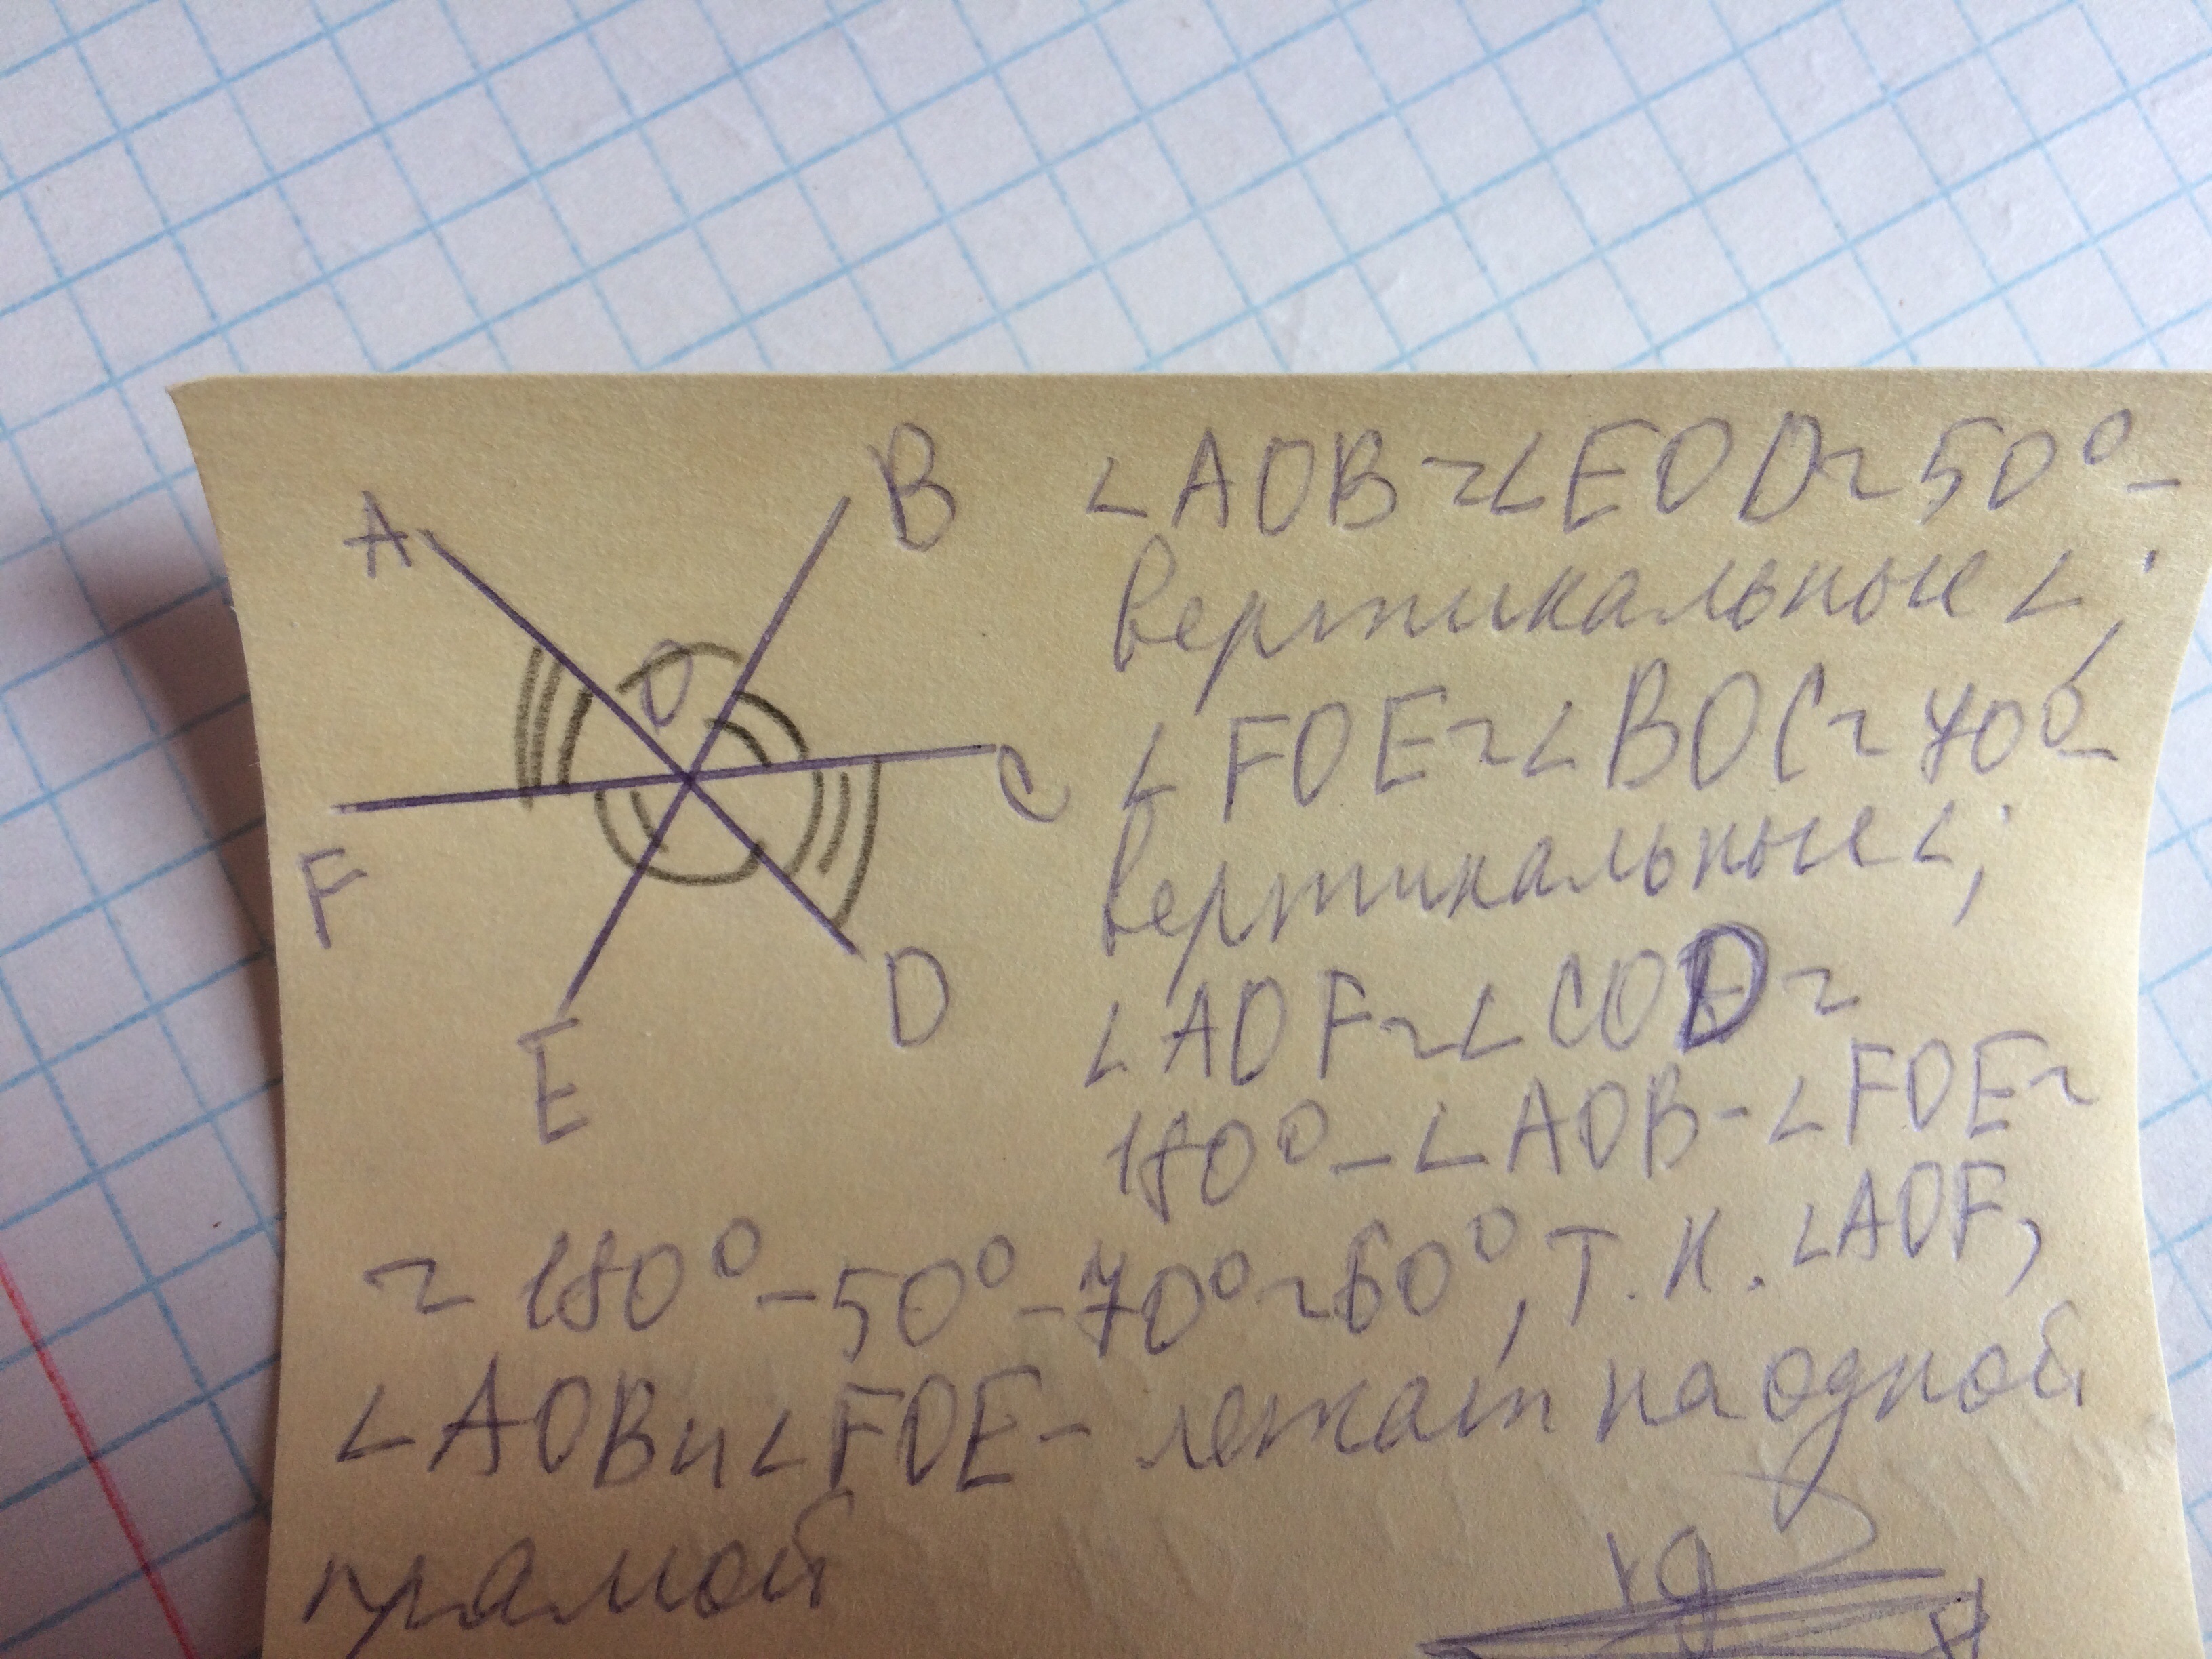 A
B
O
C
F
D
E
∠AOB=∠EOD=50°-
вертикальные ∠;
∠FOE=∠BOC=70°-
вертикальные ∠;
∠AOF=∠COD=
180°-∠AOB-∠FOE=
=180°-50°-70°=60°, т.к. ∠AOF,
∠AOB и ∠FOE- лежат на одной
прямой